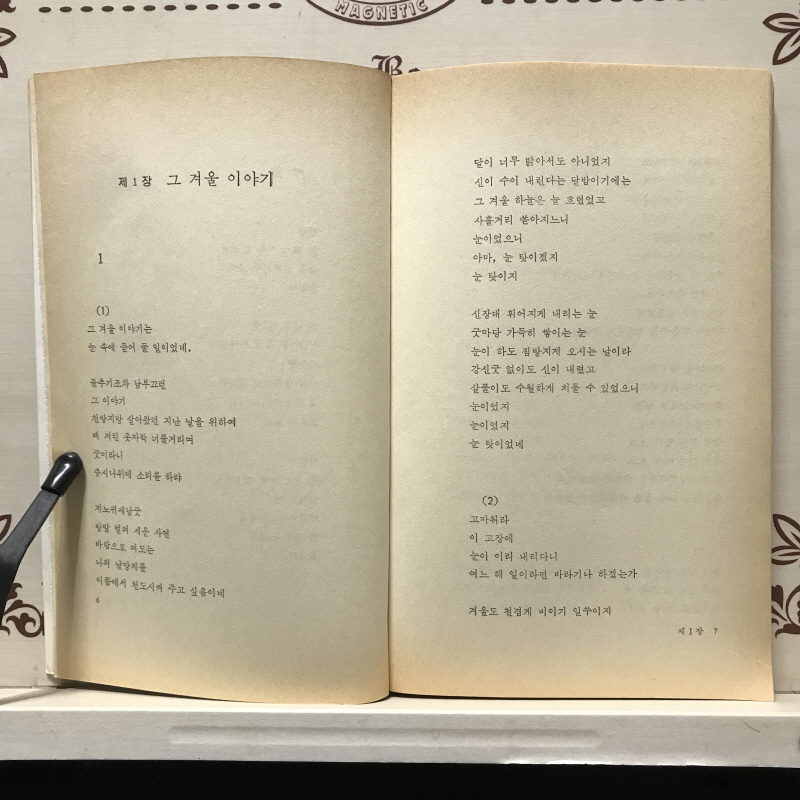 MAGNETIC
제1장 그 겨울 이야기
1
(1)
그 겨울 이야기는
눈 속에 묻어 둘 일이었네.
들추기조차 남부끄런
그 이야기
천방지방 살아왔던 지난 날을 위하여
때 저린 옷자락 너풀거리며
굿이라니
시나위에 소리를 하랴
지노귀새남굿
빌려 세운 사연
바람으로 떠도는
나의 날망제를
이쯤에서 천도시켜 주고 싶음이네
6
달이 너무 밝아서도 아니었지
신이 수이 내린다는 달밤이기에는
그 겨울 하늘은 늘 흐렸었고
사흘거리 쏟아지느니
눈이었으니
아마, 눈 탓이겠지
눈 탓이지
신장대 휘어지게 내리는 눈
굿마당 가득히 쌓이는 눈
눈이 하도 짐방지게 오시는 날이라
강신굿 없이도 신이 내렸고
살풀이도 수월하게 치를 수 있었으니
눈이었지
눈이었지
눈 탓이었네
(2)
고마워라
이 고장에
눈이 이리 내리다니
여느 해 일이라면 바라기나 하겠는가
겨울도 천겁게 비이기 일쑤이지
제1장 7